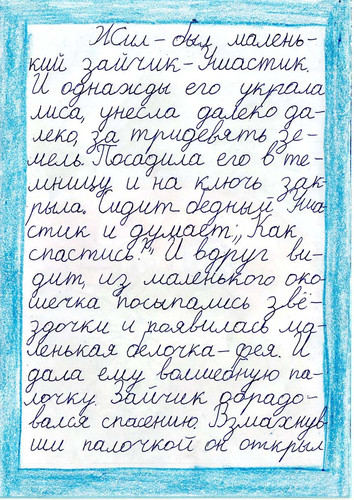 Жил-был малень-
кий зайчик-Ушастик.
И однажды его украла
лиса, унесла далеко да-
леко, за тридевять зе-
мель. Посадила его в те-
мницу и на ключь зак-
рыла. Сидит бедный Уша-
стик и думает: „Как
спастись?“ И вдруг ви-
дит, из маленького око-
шечка посыпались звё-
здочки и появилась ма-
ленькая белочка-фея. И
дала ему волшебную па-
лочку. Зайчик обрадо-
вался спасению. Взмахнув-
ши палочкой он открыл